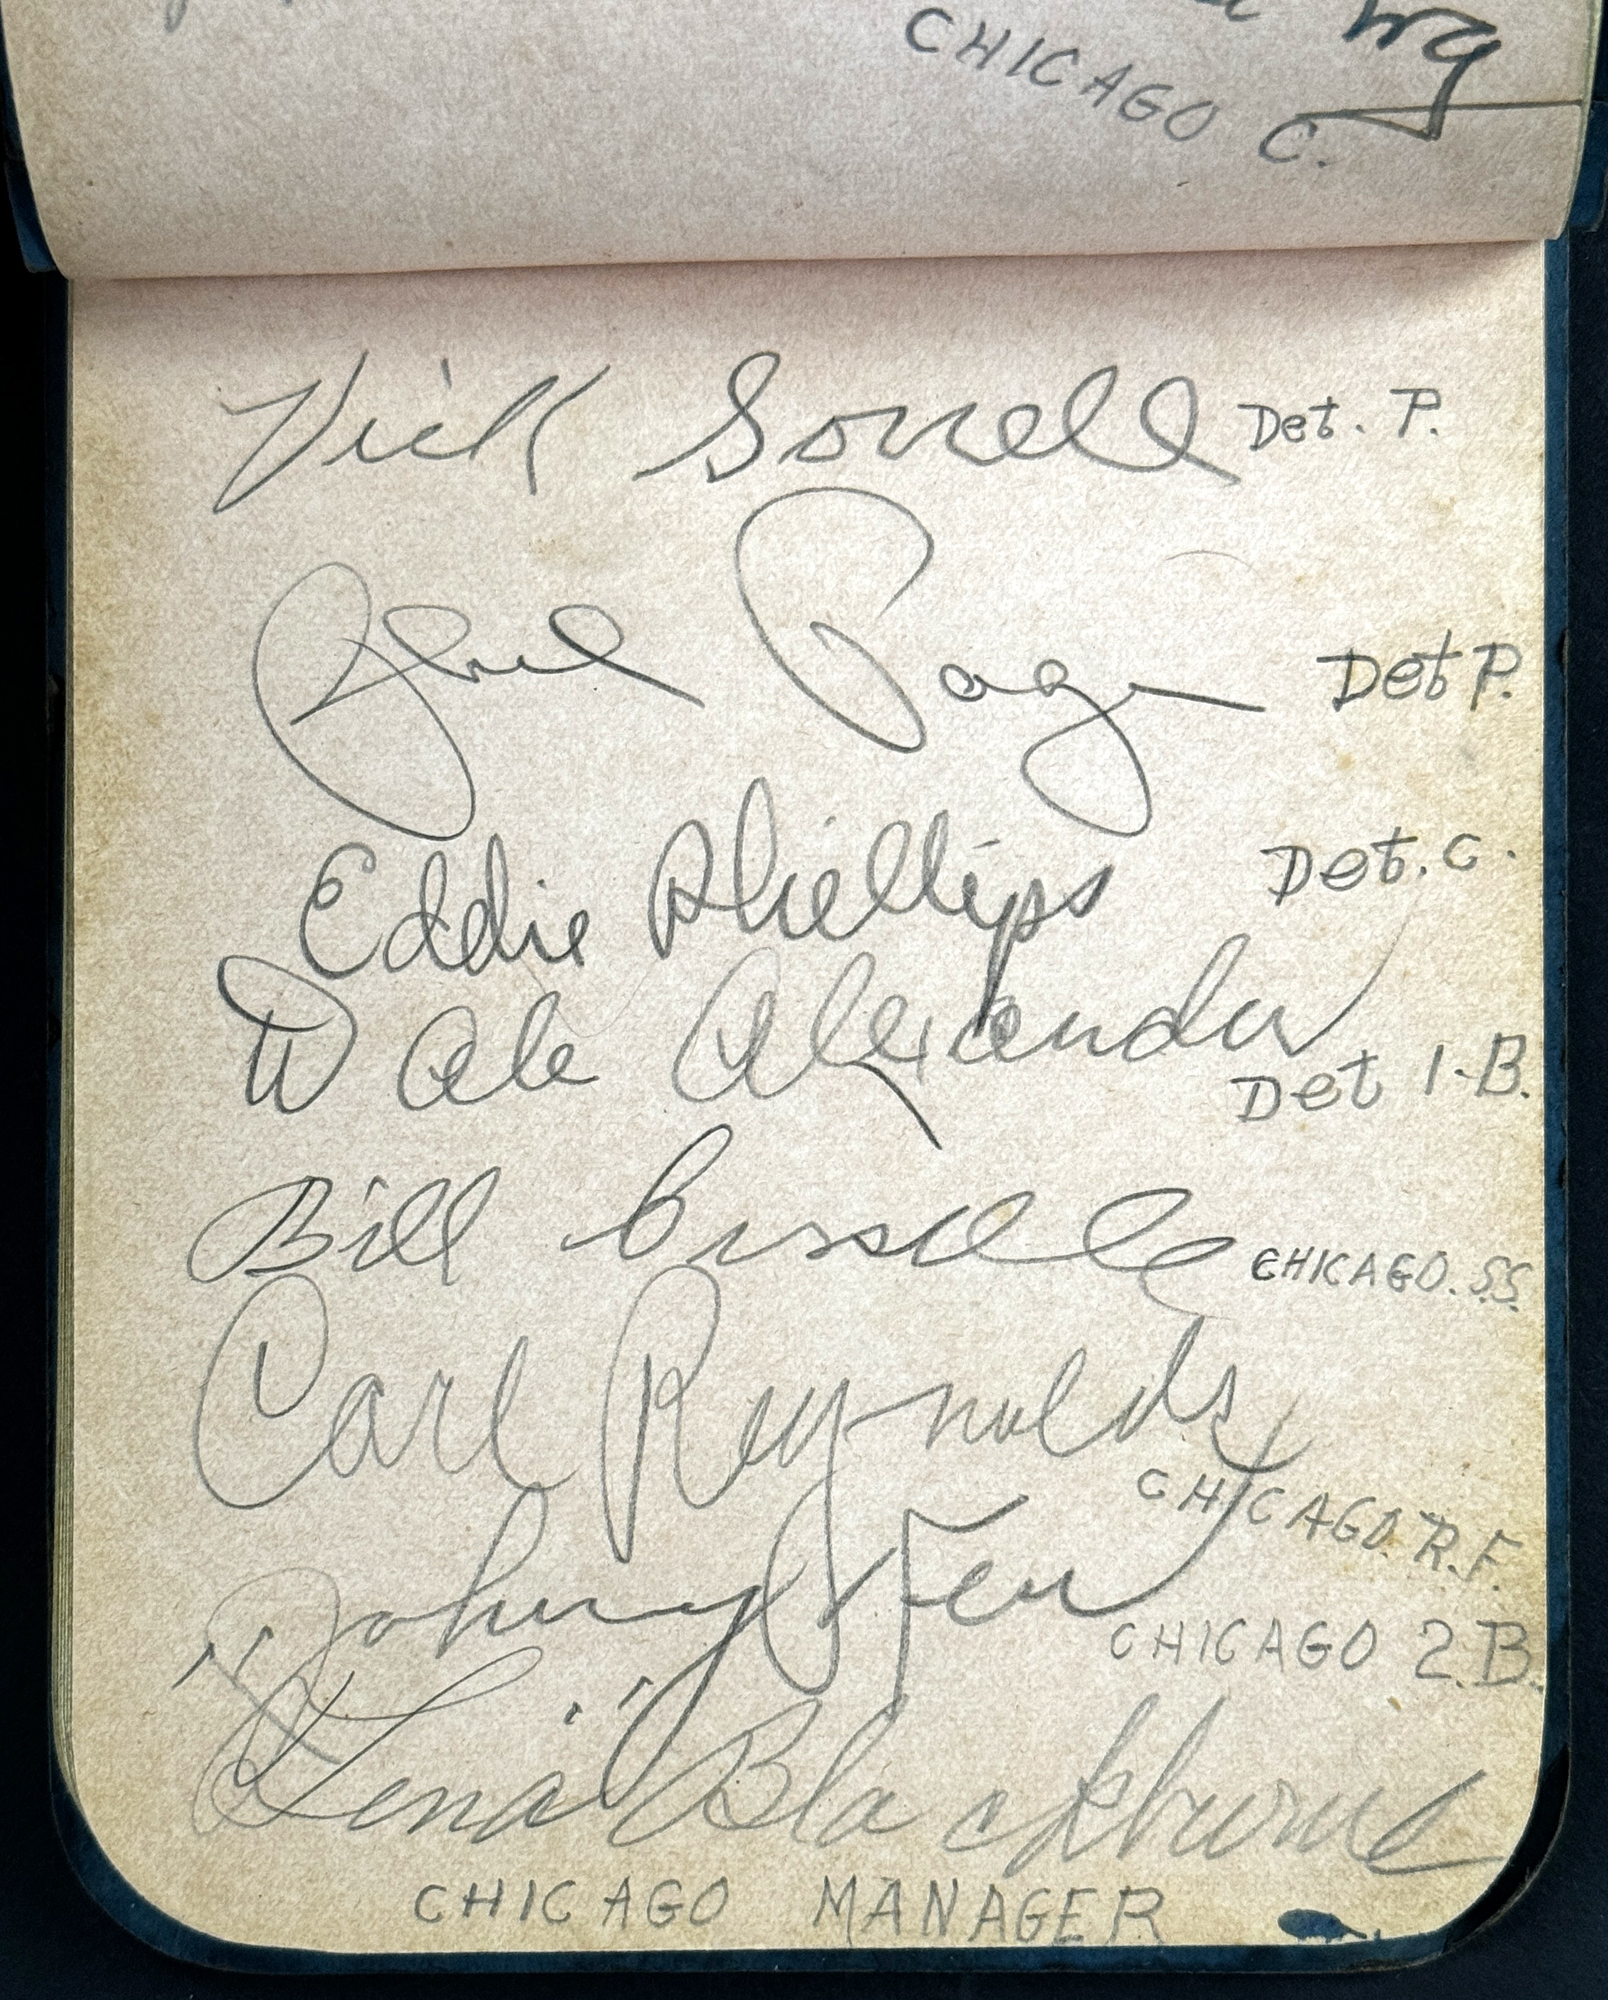 CHICAGO C.
Vick Sorrell Det. P.
Phil Page Det P.
Eddie Phillips Det. C.
Dale Alexander Det 1-B.
Bill Cissell CHICAGO. S.S.
Carl Reynolds CHICAGO. R.F.
Johnny Kerr CHICAGO 2.B.
"Lena" Blackburne
CHICAGO MANAGER